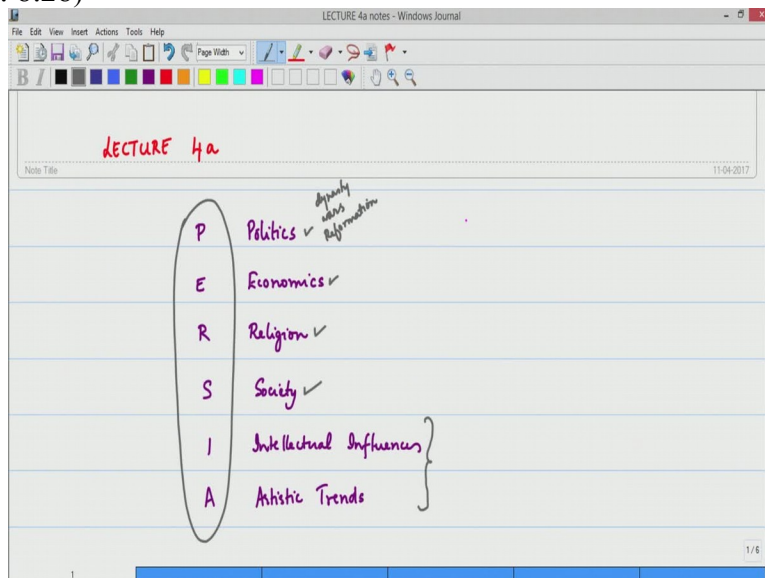 LECTURE 4a notes - Windows Journal
File Edit View Insert Actions Tools Help
Page Width
B I
LECTURE 4a
Note Title
11-04-2017
dynasty
wars
Reformation
P Politics ✓
E Economics ✓
R Religion ✓
S Society ✓
I Intellectual Influences
A Artistic Trends
1/6
1